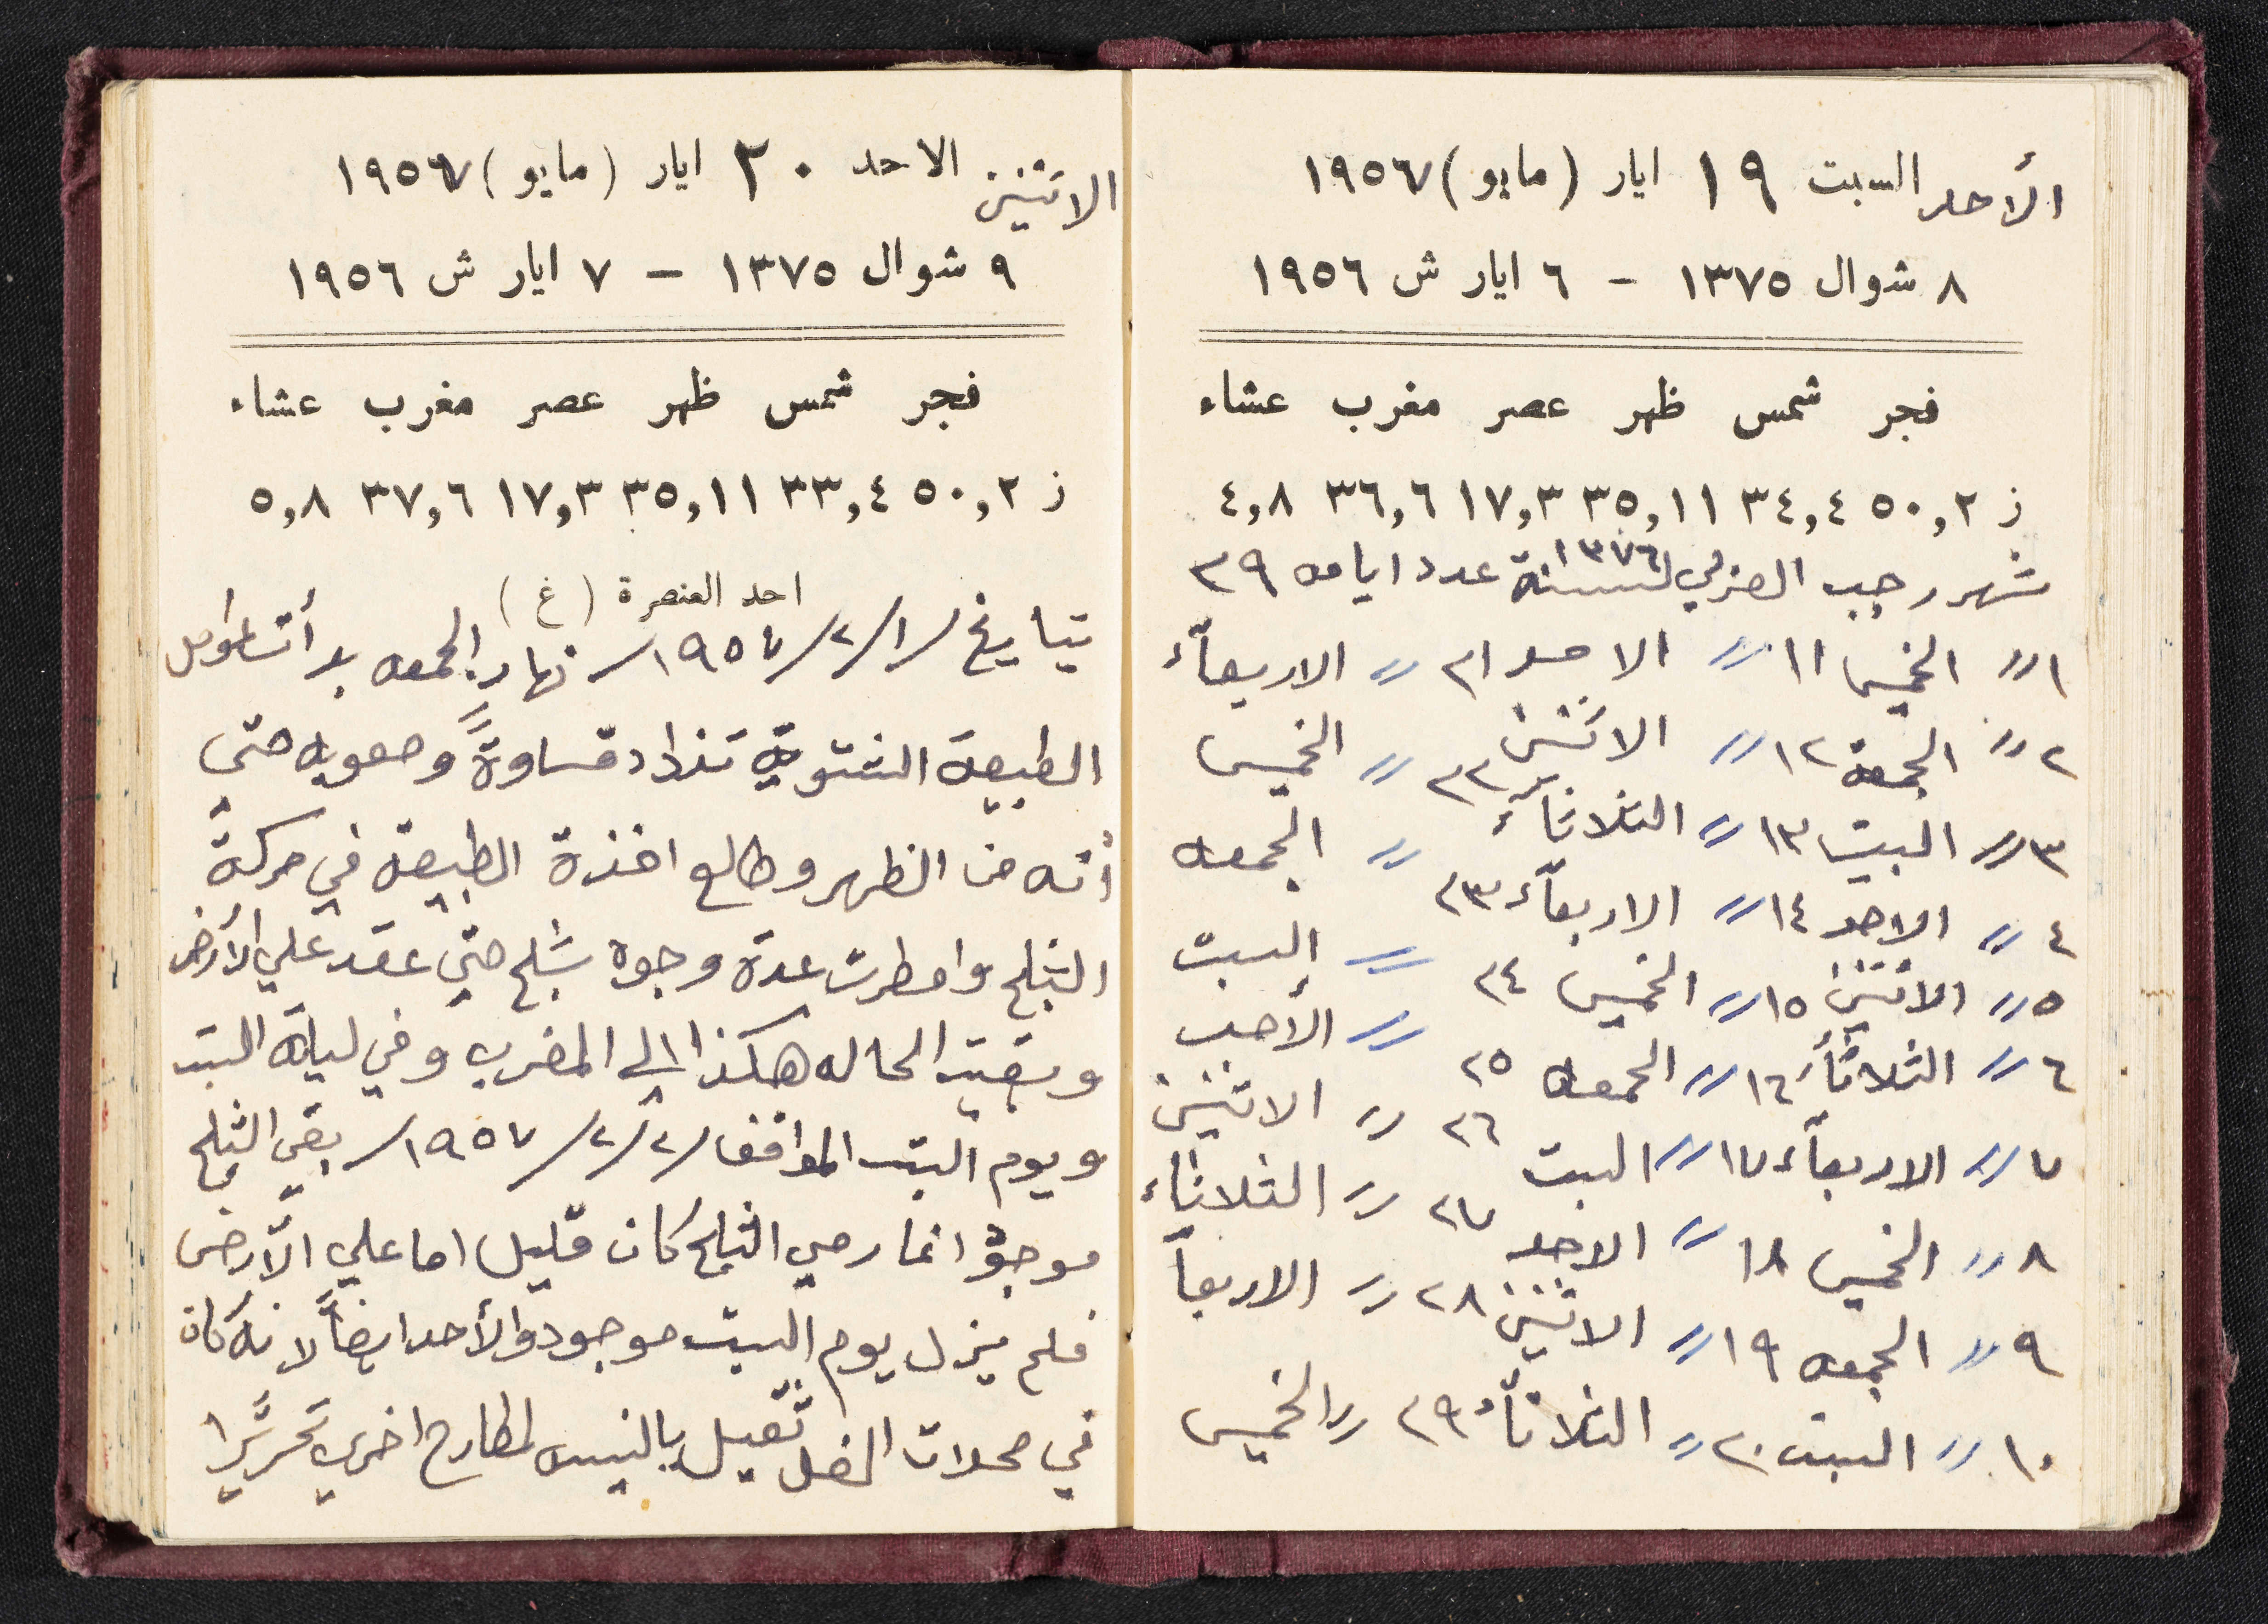 الأحد السبت ١٩ ايار (مايو) ١٩٥٦٧
٨ شوال ١٣٧٥ – ٦ ايار ش ١٩٥٦
فجر شمس ظهر عصر مغرب عشاء
ز ٥٠,٢ ٣٤,٤ ٣٥,١١ ١٧,٣ ٣٦,٦ ٤,٨
شهر رجب لسنة ١٣٧٦ عدد ايامه ٢٩
١〃 الخميس ١١〃 الاحد ٢١〃 الاربعآء
٢〃 الجمعة ١٢〃 الاثنين ٢٢〃 الخميس
٣〃 السبت ١٣〃 الثلاثآء〃 الجمعه
٤〃 الاحد ١٤〃 الاربعآء ٢٣〃 السبت
٥〃 الاثنين ١٥〃 الخميس ٢٤〃 الأحد
٦〃 الثلاثآء ١٦〃 الجمعه ٢٥
٧〃 الاربعآء ١٧〃 السبت ٢٦〃 الاثنين
٨〃 الخميس ١٨〃 الاحد ٢٧〃 الثلاثاء
٩〃 الجمعه ١٩〃 الاثنين ٢٨〃 الاربعآ
١٠〃 السبت ٢٠〃 الثلاثآء ٢٩〃 الخميس
الاثنين الاحد ٢٠ ايار (مايو) ١٩٥٦٧
٩ شوال ١٣٧٥ – ٧ ايار ش ١٩٥٦
فجر شمس ظهر عصر مغرب عشاء
ز ٥٠,٢ ٣٣,٤ ٣٥,١١ ١٧,٣ ٣٧,٦ ٥,٨
احد العنصرة (غ)
بتايخ /١/٢/١٩٥٧/ نهار الجمعه بدأت
الطبيعة الشتوية تزداد قساوةً وصعوبه حتى
أنه من الظهر وطالع اخذة الطبيعة في حركة
الثلج وامطرت عدة وجوه بثلج حتى عقد على الأرض
وبقيت الحاله هكذا الى المغرب وفي ليلة السبت
ويوم السبت الموافق /٢/٢/١٩٥٧/ بقي الثلج
موجود انما رمي الثلج كان قليل اما على الأرض
فلم يزل يوم السبت موجود والأحد ايضاً لانه كان
في محلات ثقيل بالنسبه لمطارح اخرى